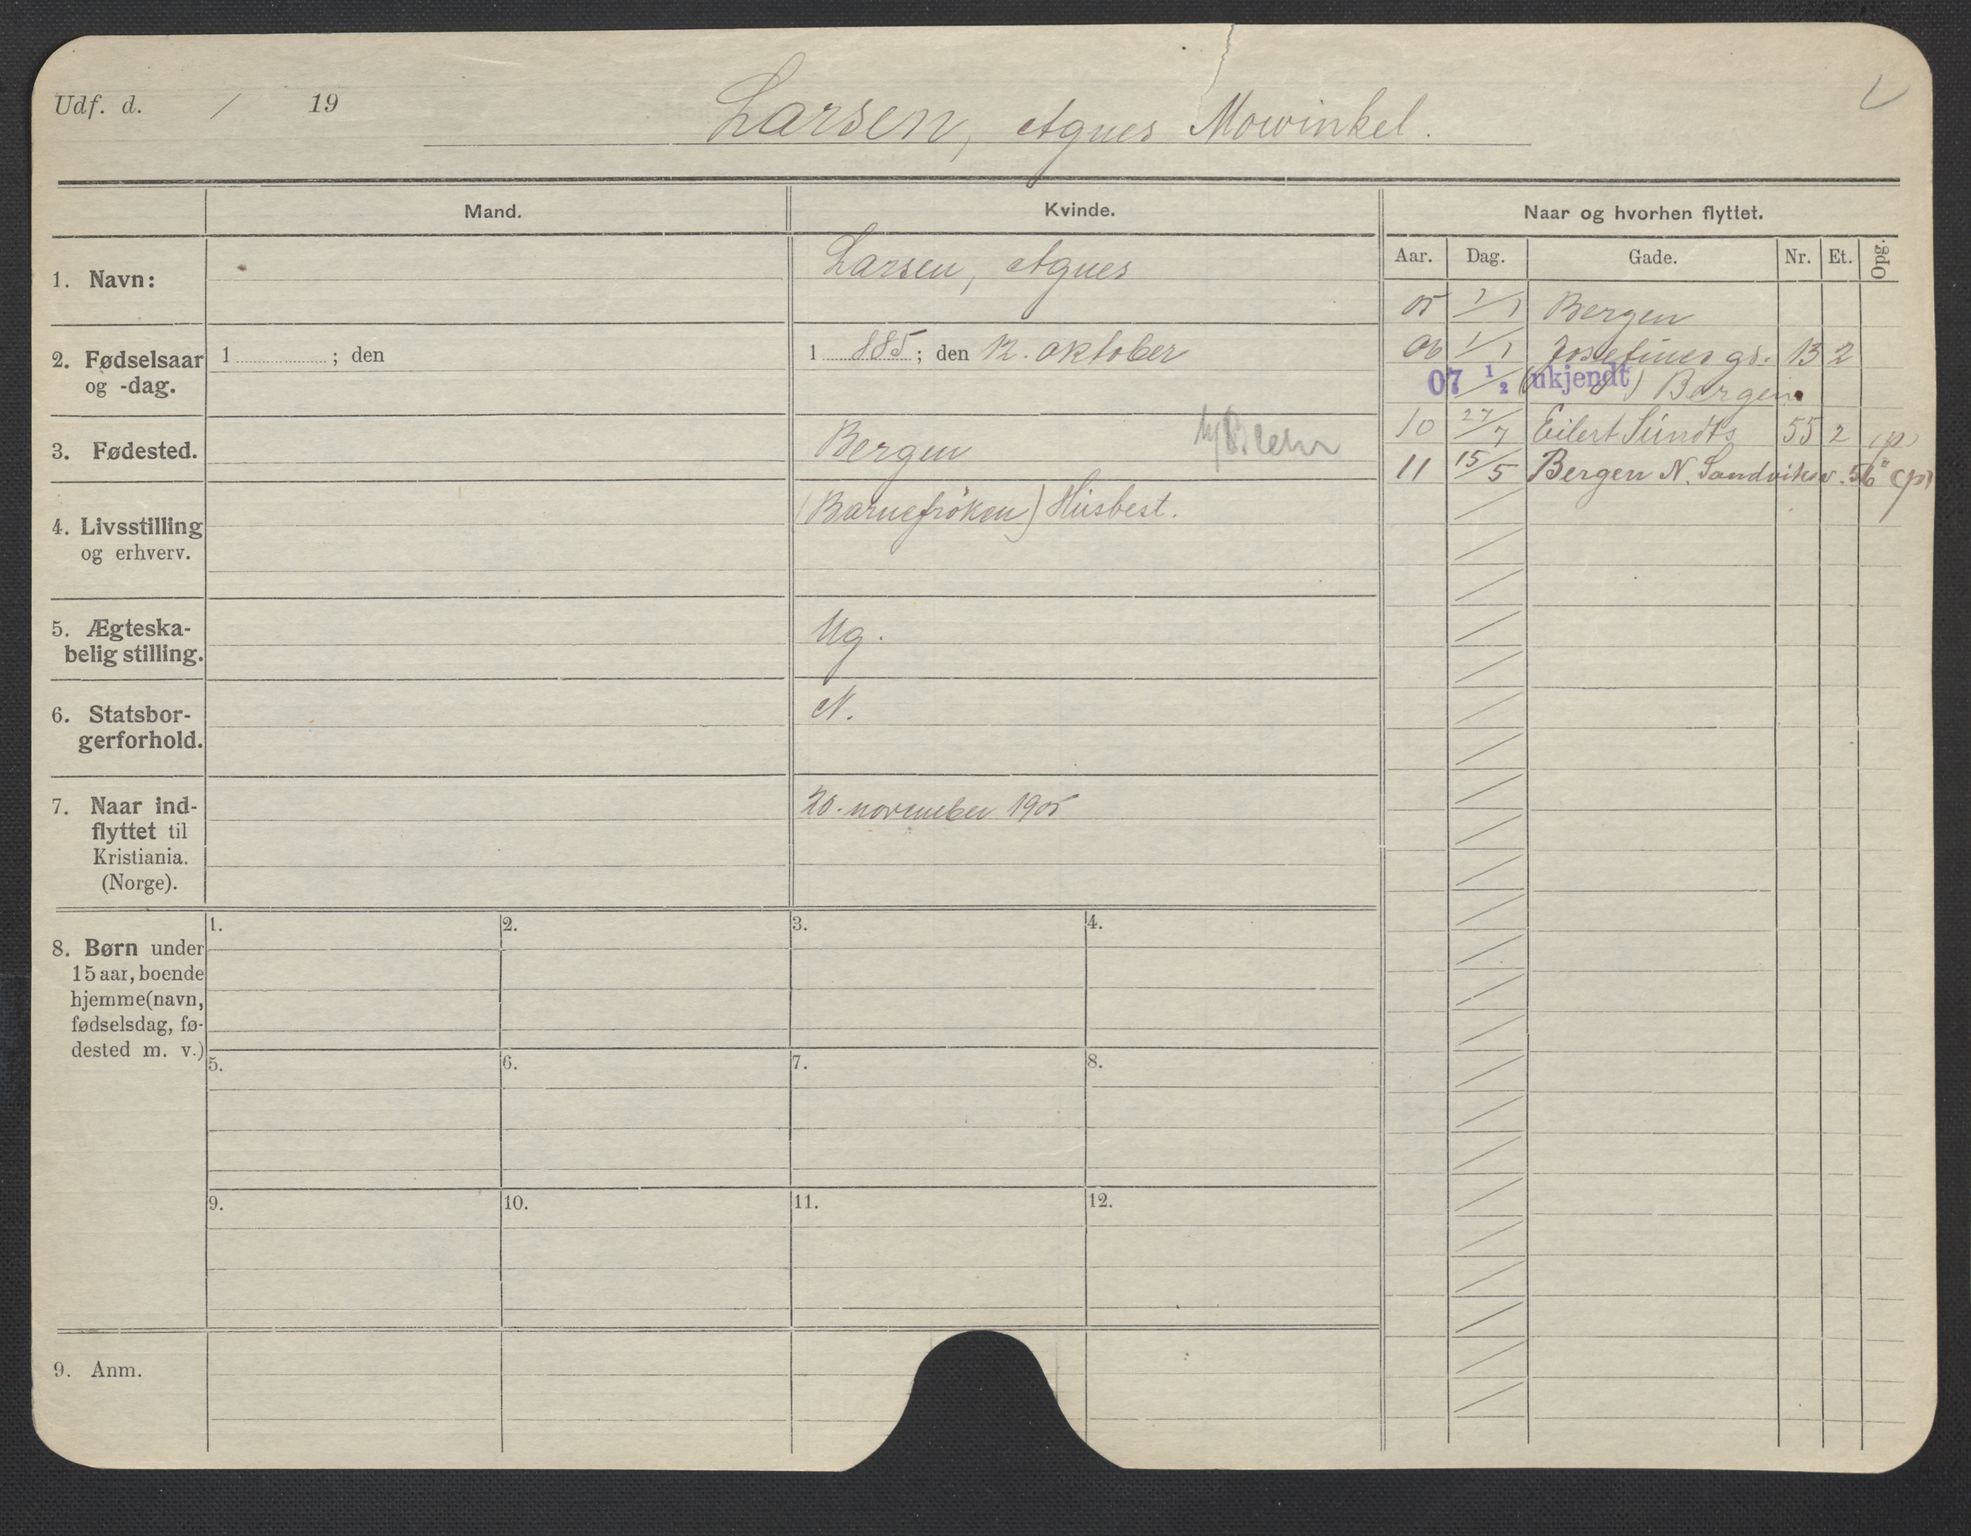 Udf. d. / 19
Larsen, Agnes Mowinkel.
Mand.
Kvinde.
Naar og hvorhen flyttet.
Aar. Dag. Gade. Nr. Et. Opg.
1. Navn:
Larsen, Agnes
2. Fødselsaar
og -dag.
1 ; den
1 885; den 12. oktober
3. Fødested.
Bergen
4. Livsstilling
og erhverv.
(Barnefrøken) Husbest.
5. Ægteska-
belig stilling.
Ug.
6. Statsbor-
gerforhold.
N.
7. Naar ind-
flyttet til
Kristiania.
(Norge).
20. november 1905
05 1/1 Bergen
06 1/1 Josefines gd. 13 2
07 1/2 (ukjendt) Bergen
10 27/7 Eilert Sundts 55 2 (p)
11 15/5 Bergen N. Sandviksv. 56 (p)
8. Børn under
15 aar, boende
hjemme (navn,
fødselsdag, fø-
dested m. v.)
1. 2. 3. 4.
5. 6. 7. 8.
9. 10. 11. 12.
9. Anm.